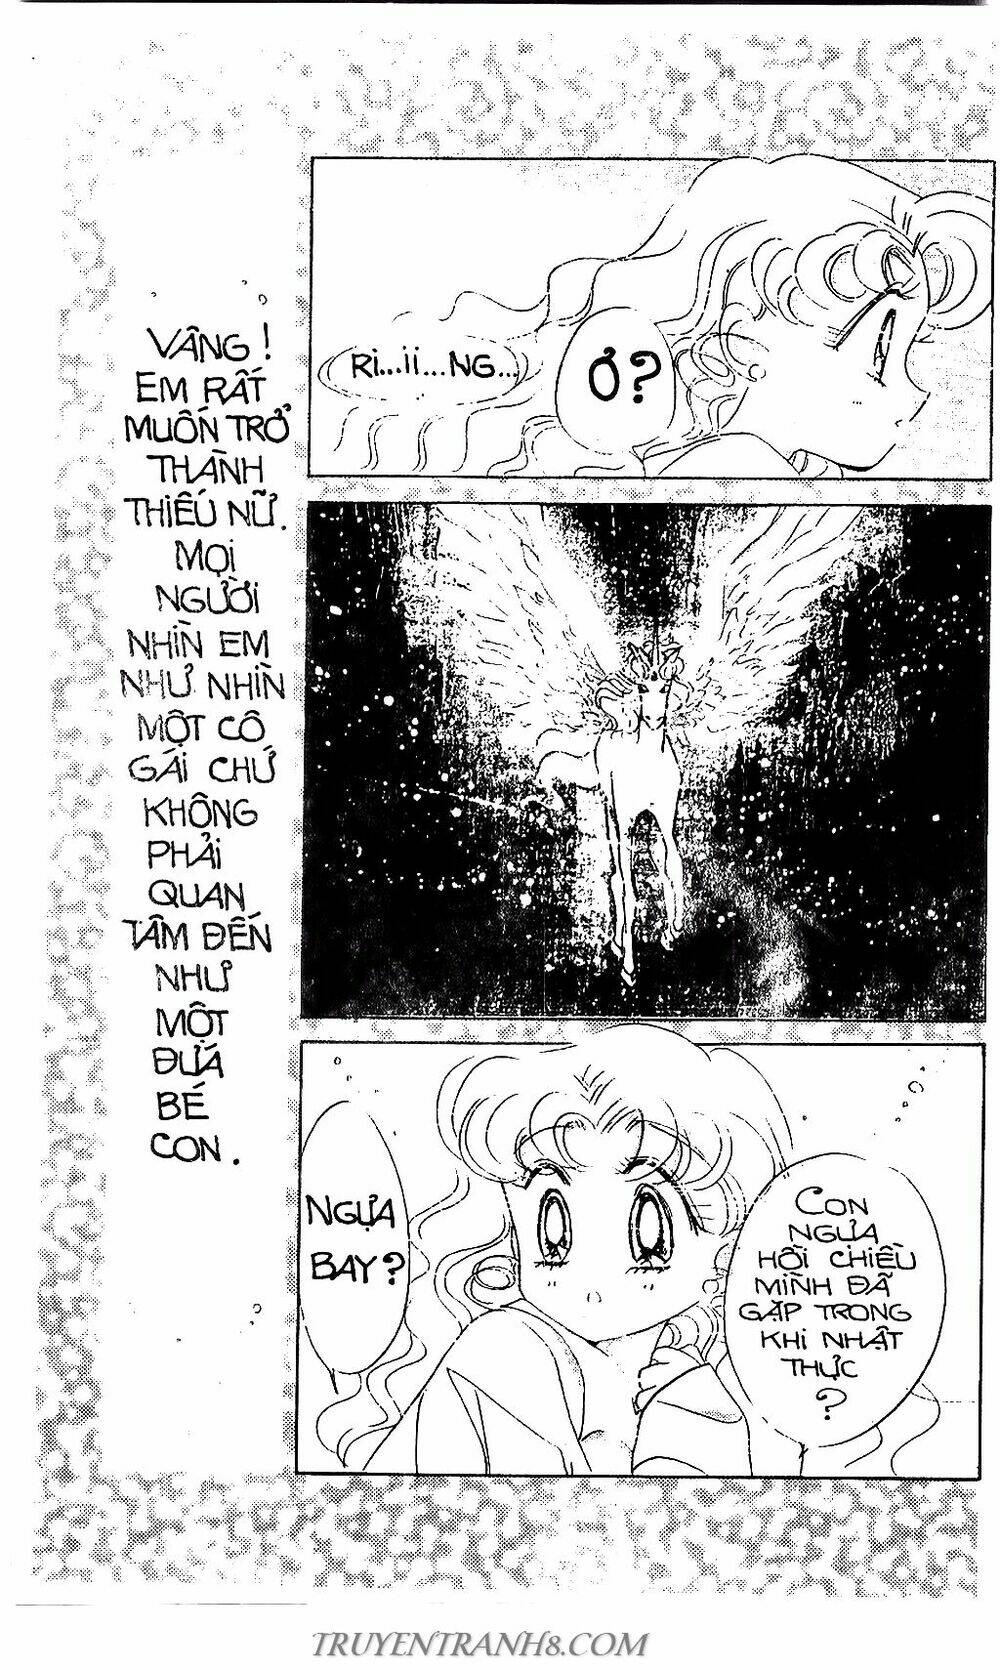 VÂNG!
EM RẤT
MUỐN TRỞ
THÀNH
THIẾU NỮ.
MỌI
NGƯỜI
NHÌN EM
NHƯ NHÌN
MỘT CÔ
GÁI CHỨ
KHÔNG
PHẢI
QUAN
TÂM ĐẾN
NHƯ
MỘT
ĐỨA
BÉ
CON.
RI...II...NG...
Ơ?
NGỰA
BAY?
CON
NGỰA
HỒI CHIỀU
MÌNH ĐÃ
GẶP TRONG
KHI NHẬT
THỰC
?
TRUYENTRANH8.COM